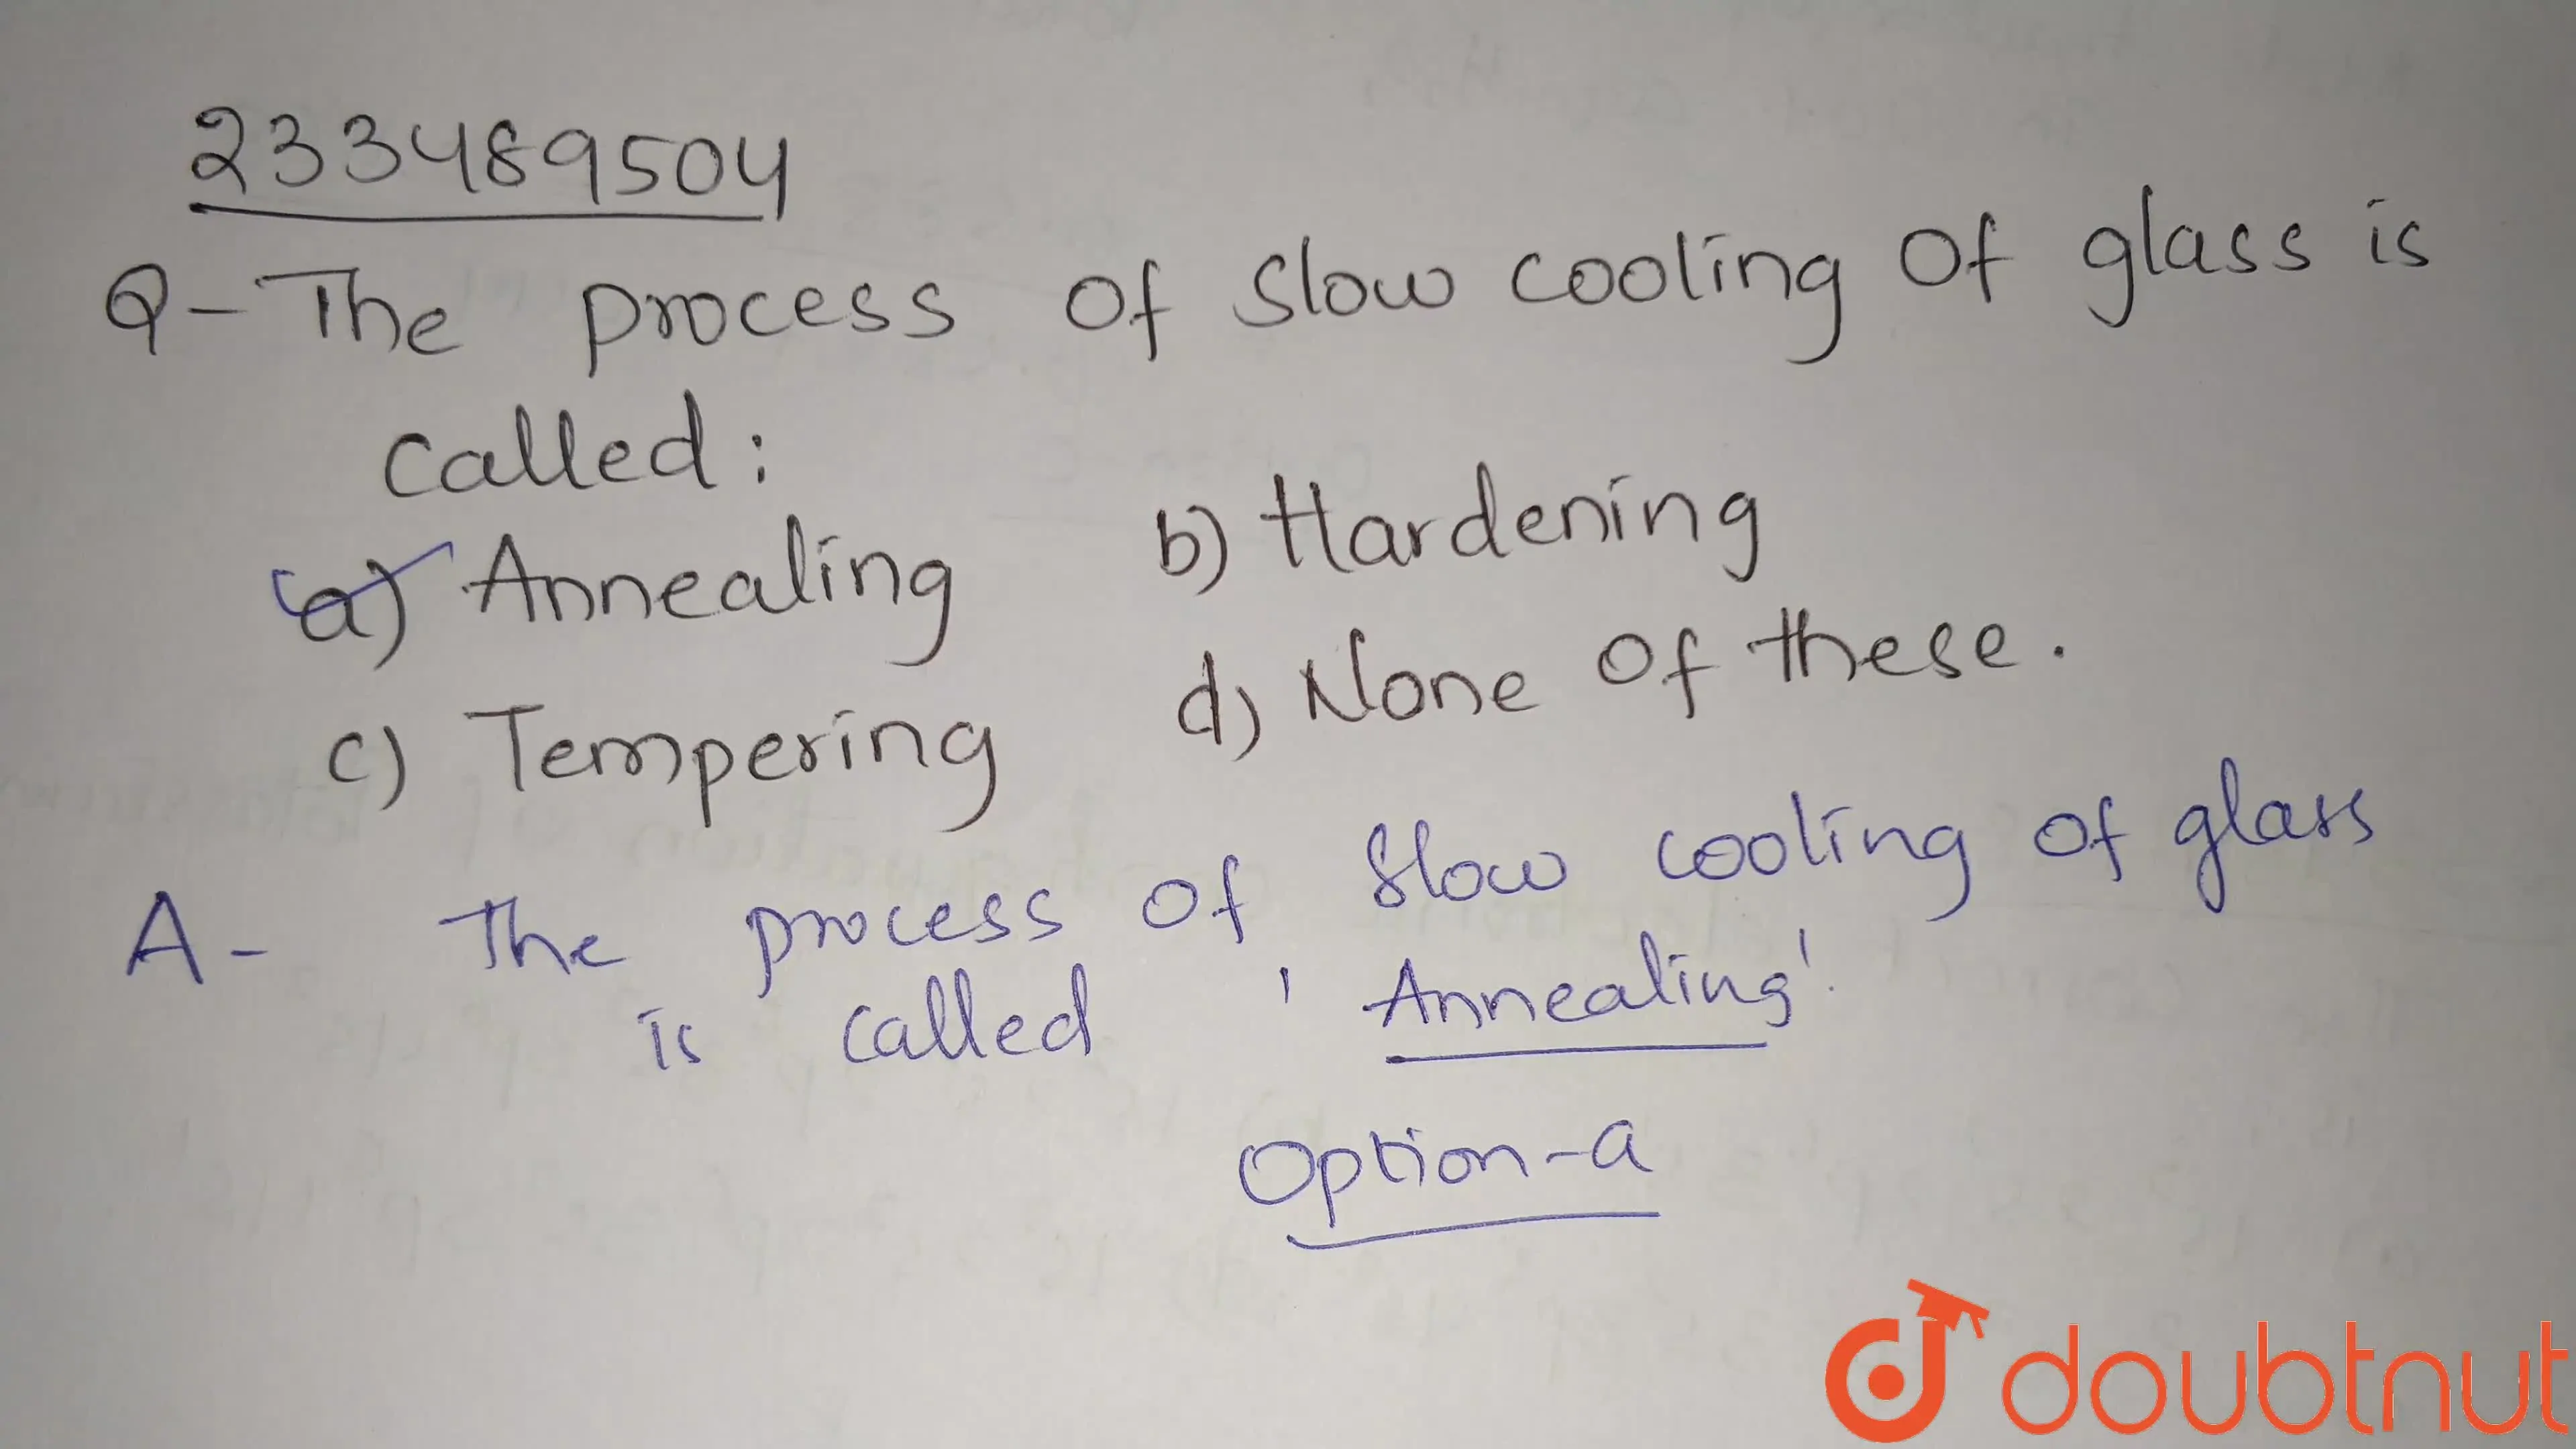 233489504
Q- The process of slow cooling of glass is
called:
(a) Annealing b) Hardening
c) Tempering d) None of these.
A- The process of slow cooling of glass
is called 'Annealing'.
Option-a
doubtnut